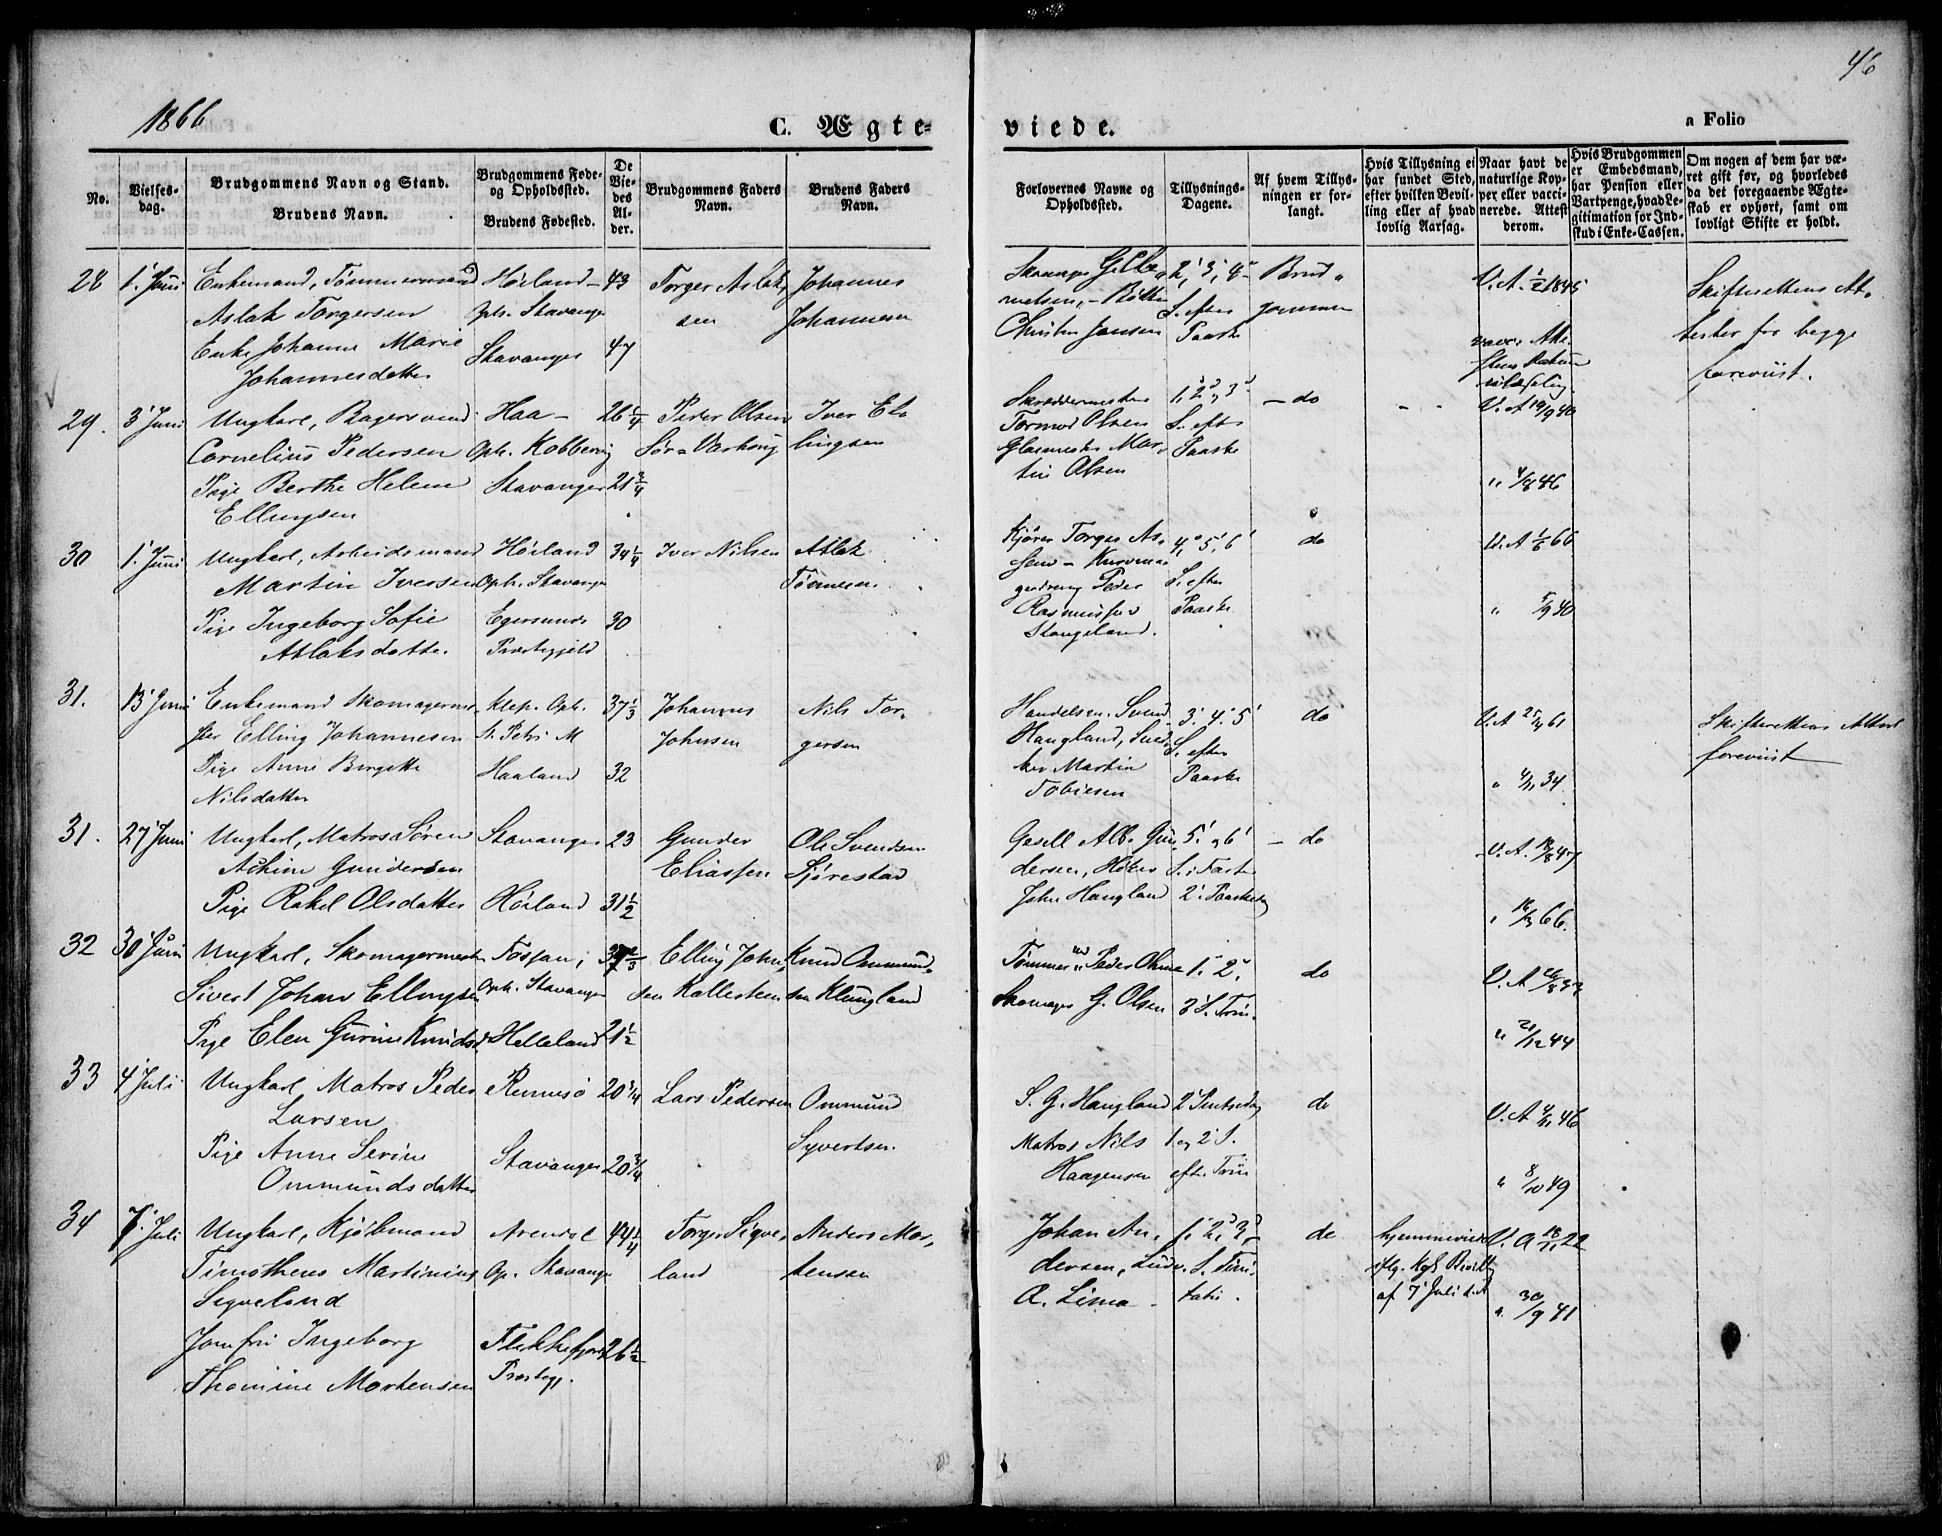 46
1866
C. Ægte-
viede.
a Folio
No.
Vielses-
dag.
Brudgommens Navn og Stand.
Brudens Navn.
Brudgommens Føde-
og Opholdssted.
Brudens Fødested.
De
Vie-
des
Al-
der.
Brudgommens Faders
Navn.
Brudens Faders
Navn.
Forlovernes Navne og
Opholdssted.
Tillysnings-
Dagene.
Af hvem Tillys-
ningen er for-
langt.
Hvis Tillysning ei
har fundet Sted,
efter hvilken Bevil-
ling eller af hvad
lovlig Aarsag.
Naar havt de
naturlige Kop-
per eller vacci-
nerede. Attest
derom.
Hvis Brudgommen
er Embedsmand,
har Pension eller
Vartpenge, hvad Le-
gitimation for Ind-
skud i Enke-Cassen.
Om nogen af dem har væ-
ret gift før, og hvorledes
da det foregaaende Ægte-
skab er ophørt, samt om
lovligt Skifte er holdt.
28 1. Juni Enkemand, Tømmermand Høiland 43 Torger Aslak Johannes
Aslak Torgersen Oph. Stavanger sen Johannesen
Enke Johanne Marie Stavanger 47
Johannesdatter
2, 3, 4 Brud
S. efter gommen
Christen Jansen Paaske
V. A. 1845
Skifterettens At
tester for begge
foreviist.
29. 3 Juni Ungkarl, Bagersvend Haa 26 1/4 Peder Olsen Iver El
Cornelius Pedersen Oph. Kobbervig Sør Varhoug lingsen
Pige Berthe Helene Stavanger 21 3/4
Ellingsen
Skreddermester 1, 2, 3 do V. A 19/9 40
Tormod Olsen S. efter
Glasmester Mar Paaske
tin Olsen " 4/8 46
30 1. Juni Ungkarl, Arbeidsmand Høiland 34 1/4 Iver Nilsen Aslak
Martin Iversen Oph. Stavanger Tønnesen.
Pige Ingeborg Sofie Egersunds 30
Aslaksdatter. Præstegjeld
Kjører Torger As 4, 5, 6 do V. A 1/6 66
Peder S. efter
Rasmussen Paaske " 5/9 40
Stangeland.
31. 13 Juni Enkemand Skomagerme Klep. Oph. 37 1/3 Johannes Nils Tor
ster Elling Johannesen St. Petri M Johnsen gersen
Pige Anne Birgitte Haaland 32
Nilsdatter
Handelsm. Svend 3. 4. 5 do V. A 25/4 61 Skifterettens Attest
Haugland, Sned S. efter foreviist
ker Martin Paaske " 4/11 34
Tobiesen
31. 27 Juni Ungkarl, Matros Søren Stavanger 23 Gunder Ole Svendsen
Gundersen Eliassen Sjørestad
Pige Rakel Olsdatter Høiland 31 1/2
Gesell Alb. Gun 5 og 6 do V. A.
dersen, Høker S. i Faste
John Haugland 2. Paaskedag 66.
32 30 Juni Ungkarl, Skomagermest Fossan, Elling John Knud Ommund
Sivert Johan Ellingsen Oph. Stavanger sen Kallesteen sen Klungland
Pige Elen Gurine Knudsd. Helleland 21 1/2
Tømmermd Peder 1. 2. do V. A
Skomager G. Olsen 3 S. Trin.
" 21/12 44
33 4 Juli Ungkarl Matros Peder Rennesø 20 3/4 Lars Pedersen Ommund
Larsen Syvertsen.
Pige Anne Serine Stavanger 20 3/4
Ommundsdatter
S. G. Haugland 2 Pintsedag do V. A 4/11 46
Matros Nils 1 og 2 S.
Haagensen efter Trin " 8/10 49
34 7. Juli Ungkarl, Kjøbmand Arendal 44 1/4 Torger Sigve Anders Mor
Timotheus Martinius Op. Stavanger land tensen
Sigveland
Jomfru Ingeborg Flekkefjords 26 1/2
Thomine Mortensen Præstegj.
Johan An 1. 2, 3 do hjemmeviede V. A 18/11 22
dersen, Ludv. S. Trini ifg. Kgl. Bevillg
A. Lima tatis. af 7 Juli d.A " 30/9 41